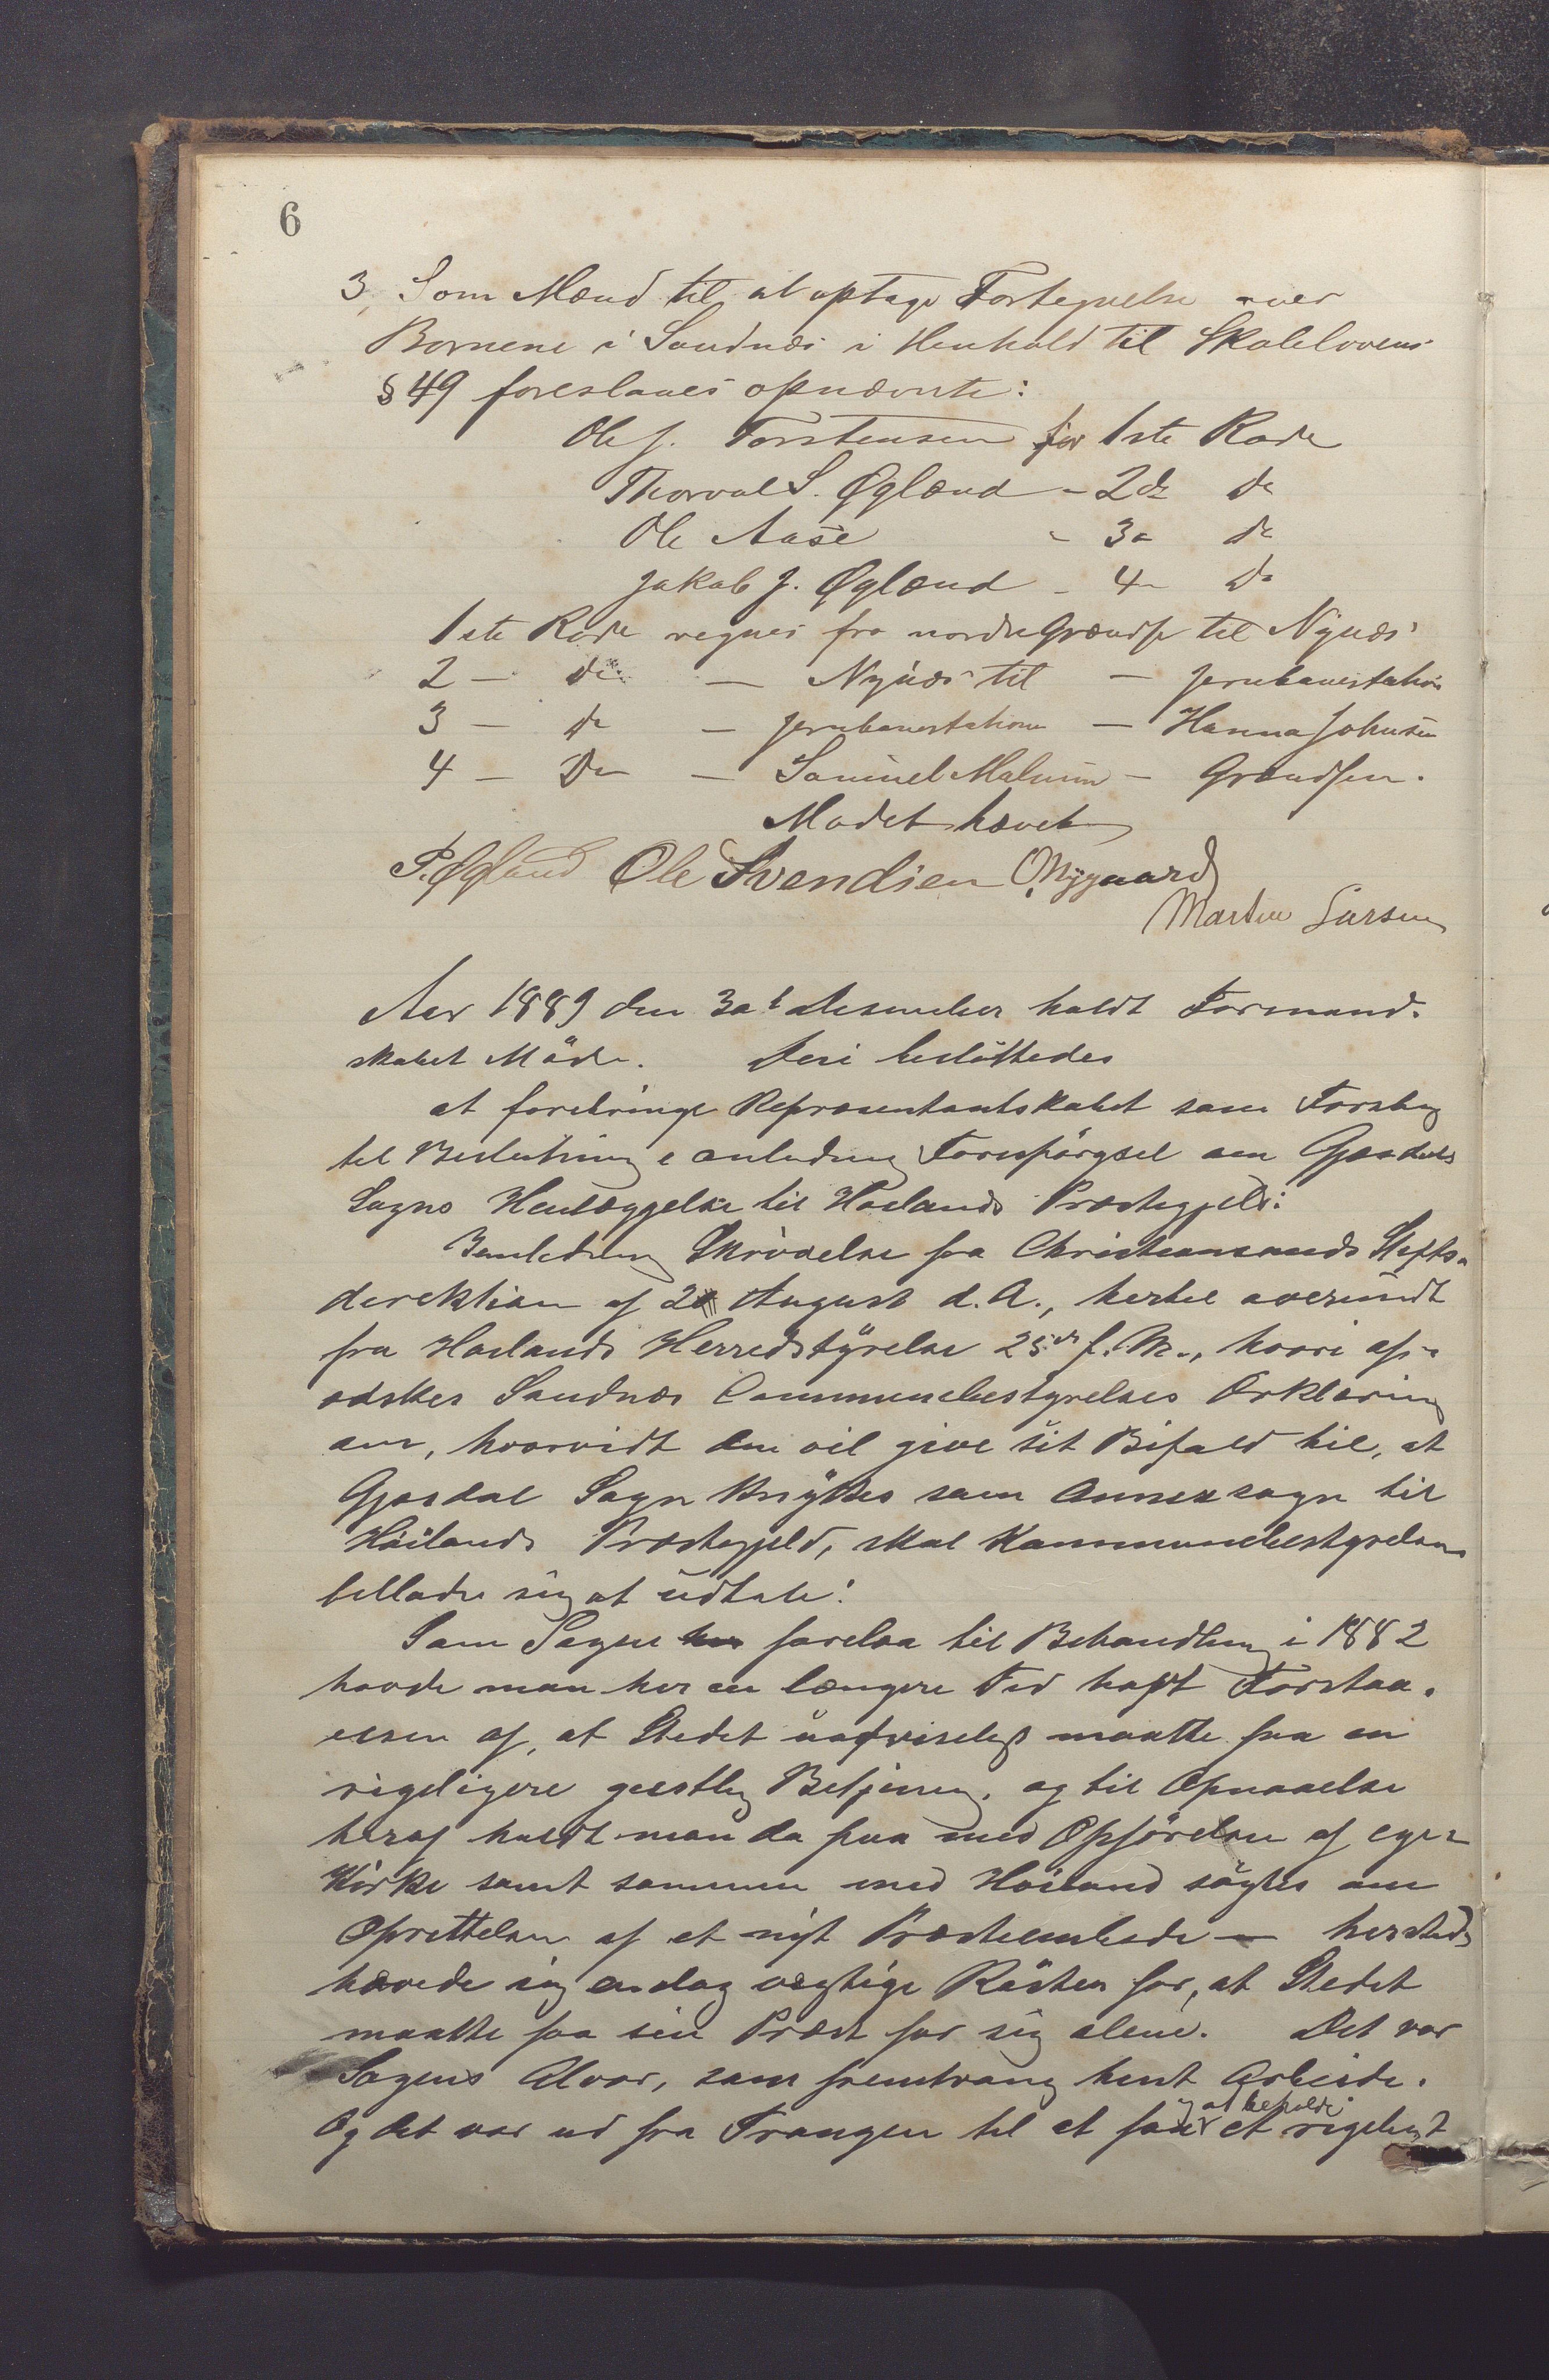 6
3, Som Mænd til at optage Fortegnelse over
Børnene i Sandnæs i Henhold til Skolelovens
§ 49 foreslaaes opnævnte:
Ole J. Torstensen for 1ste Rode
Thorval S. Øglænd - 2de do
Ole Aase - 3- do
Jakob J. Øglænd - 4- do
1ste Rode regnes fra nordre Grændse til Nynæs
2 - do - Nynæs til - Jernbanestation
3 - do - Jernbanestationen - Hanna Johnsen
4 - Do - Samuel Malmin - Grændsen.
Mødet hævet
P. Øglænd Ole Svendsen O. Nygaard
Martin Larsen
Aar 1889 den 30t desember holdt Formand-
skabet Möde. Deri beslöttedes
at forebringe Repræsentantskabet som Forslag
til Beslutning i anledning Forespörgsel om Gjesdals
Sogns Henlæggelse til Höilands Præstegjeld:
I anledning Skrivelse fra Christiansands Stifts-
direktion af 2 August d. A., hertil oversendt
fra Höilands Herredstyrelse 25de f. M., hvori af-
adskes Sandnæs Communebestyrelses Erklæring
om, hvorvidt den vil give sit Bifald til, at
Gjesdal Sogn knyttes som Annexsogn til
Höilands Præstegjeld, skal Kommunebestyrelsen
tillade sig at udtale:
Som Sagen forelaa til Behandling i 1882
havde man her en længere Tid havt Forstaa-
elsen af, at Stedet uafviseligt maatte faa en
rigeligere geistlig Betjening, og til Opnaaelse
heraf holdt man da paa med Opförelsen af egen
Kirke samt sammen med Höiland sögtes om
Oprettelsen af et nyt Præsteembede — hersteds
hævede sig endog vegtige Röster for, at Stedet
maatte faa sin Præst for sig alene. Det var
Sagens Alvor, som fremtvang hint Arbeide.
Og det var ud fra Trangen til at faa og at beholde et rigeligt